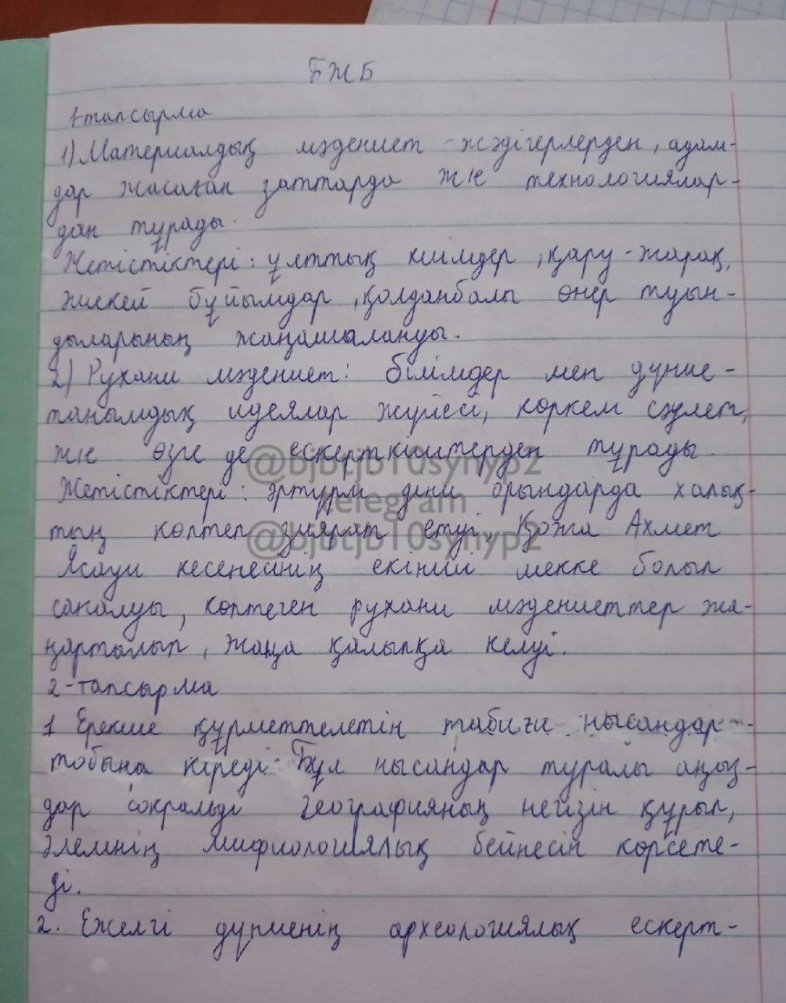 БЖБ
1-тапсырма
1) Материалдық мәдениет - жәдігерлерден, адам-
дар жасаған заттарда және технологиялар-
дан тұрады.
Жетістіктері: ұлттық киімдер, қару-жарақ,
бұйымдар, қолданбалы өнер туын-
дыларының жаңашаланды.
2) Рухани мәдениет: білімдер мен дүние-
танымдық идеялар жүйесі, көркем сәулет,
және өзге де ескерткіштерден тұрады.
@bjbtjb10synypz
Жетістіктері: әртүрлі діни орындарда халық-
telegram
тың көптеп зиярат етуі, Қожа Ахмет
@bjbtjb10synypz
Ясауи кесенейнің екінші мекке болып
саналуы, көптеген рухани мәдениеттер жа-
ңартылып, жаңа қалыпқа келуі.
2-тапсырма
1 Ерекше құрметтелетін табиғи нысандар -
тобына кіреді. Бұл нысандар туралы аңыз-
дар сокралді географияның негізін құрып,
әлемнің мифиологиялық бейнесін көрсете-
ді.
2. Ежелгі дүниенің археологиялық ескерт-